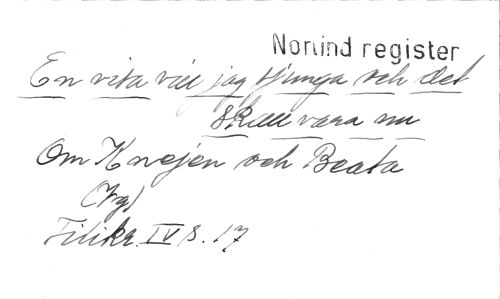 Nonind register
En visa vill jag sjunga och det
skall vara nu
Om Knejen och Beata
(Vg)
IV s. 17